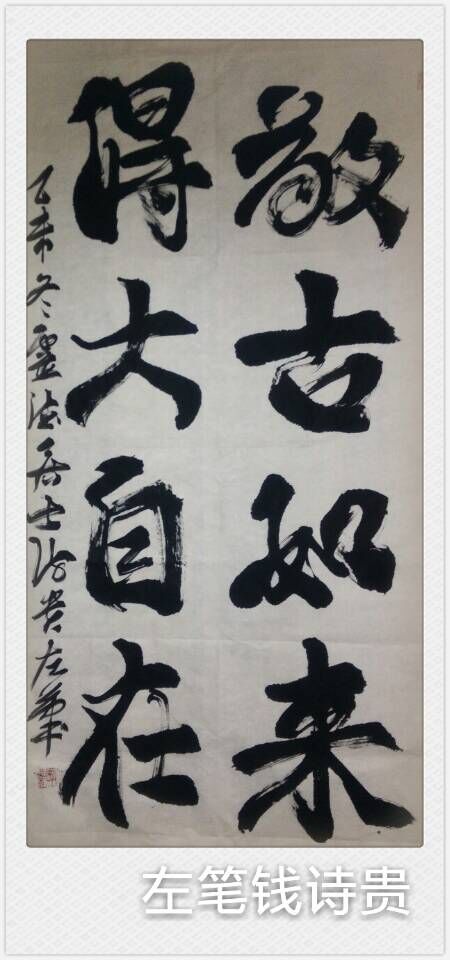 敬古如来
得大自在
乙未冬霊法居士诗贵左筆
左笔钱诗贵